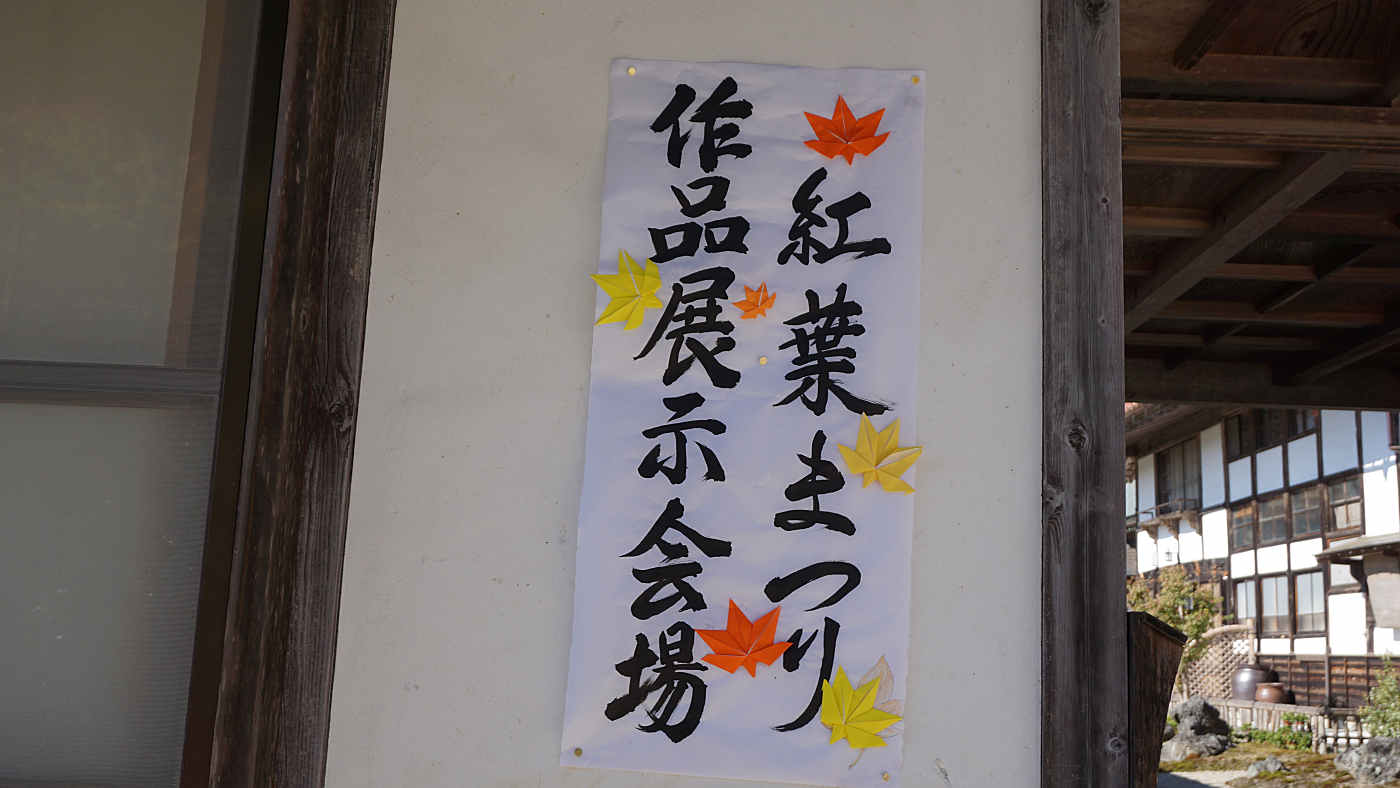 紅葉まつり
作品展示会場